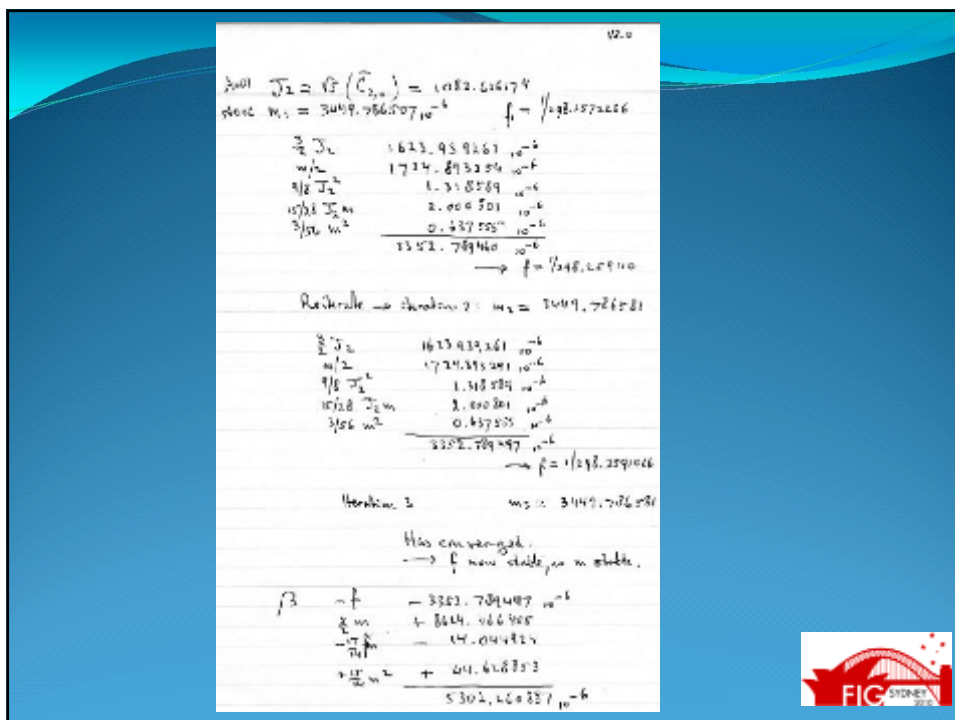 V2.0
J₂ = √5 (C̄₂,₀) = 1082.626174
m₁ = 3449.786507 ₁₀⁻⁶ f₁ = 1/298.2572236
3/2 J₂ 1623.939261 ₁₀⁻⁶
m/2 1724.893254 ₁₀⁻⁶
9/8 J₂² 1.318589 ₁₀⁻⁶
15/28 J₂ m 2.000801 ₁₀⁻⁶
3/56 m² 0.637555 ₁₀⁻⁶
3352.789460 ₁₀⁻⁶
→ f = 1/298.259110
Reiterate → iteration 2: m₂ = 3449.786581
3/2 J₂ 1623.939261 ₁₀⁻⁶
m/2 1724.893291 ₁₀⁻⁶
9/8 J₂² 1.318589 ₁₀⁻⁶
15/28 J₂ m 2.000801 ₁₀⁻⁶
3/56 m² 0.637555 ₁₀⁻⁶
3352.789497 ₁₀⁻⁶
→ f = 1/298.2591066
Iteration 3 m₃ = 3449.786581
Has converged.
→ f now stable, as m stable.
β -f - 3352.789497 ₁₀⁻⁶
m + 8624.466455
- 14.044825
m² + 44.628853
5302.260887 ₁₀⁻⁶
FIG SYDNEY
2010